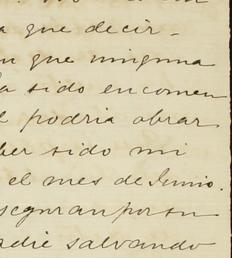 que decir -
que ninguna
sido encomen
podria obrar
ber sido mi
el mes de Junio.
seguran por su
adie salvando